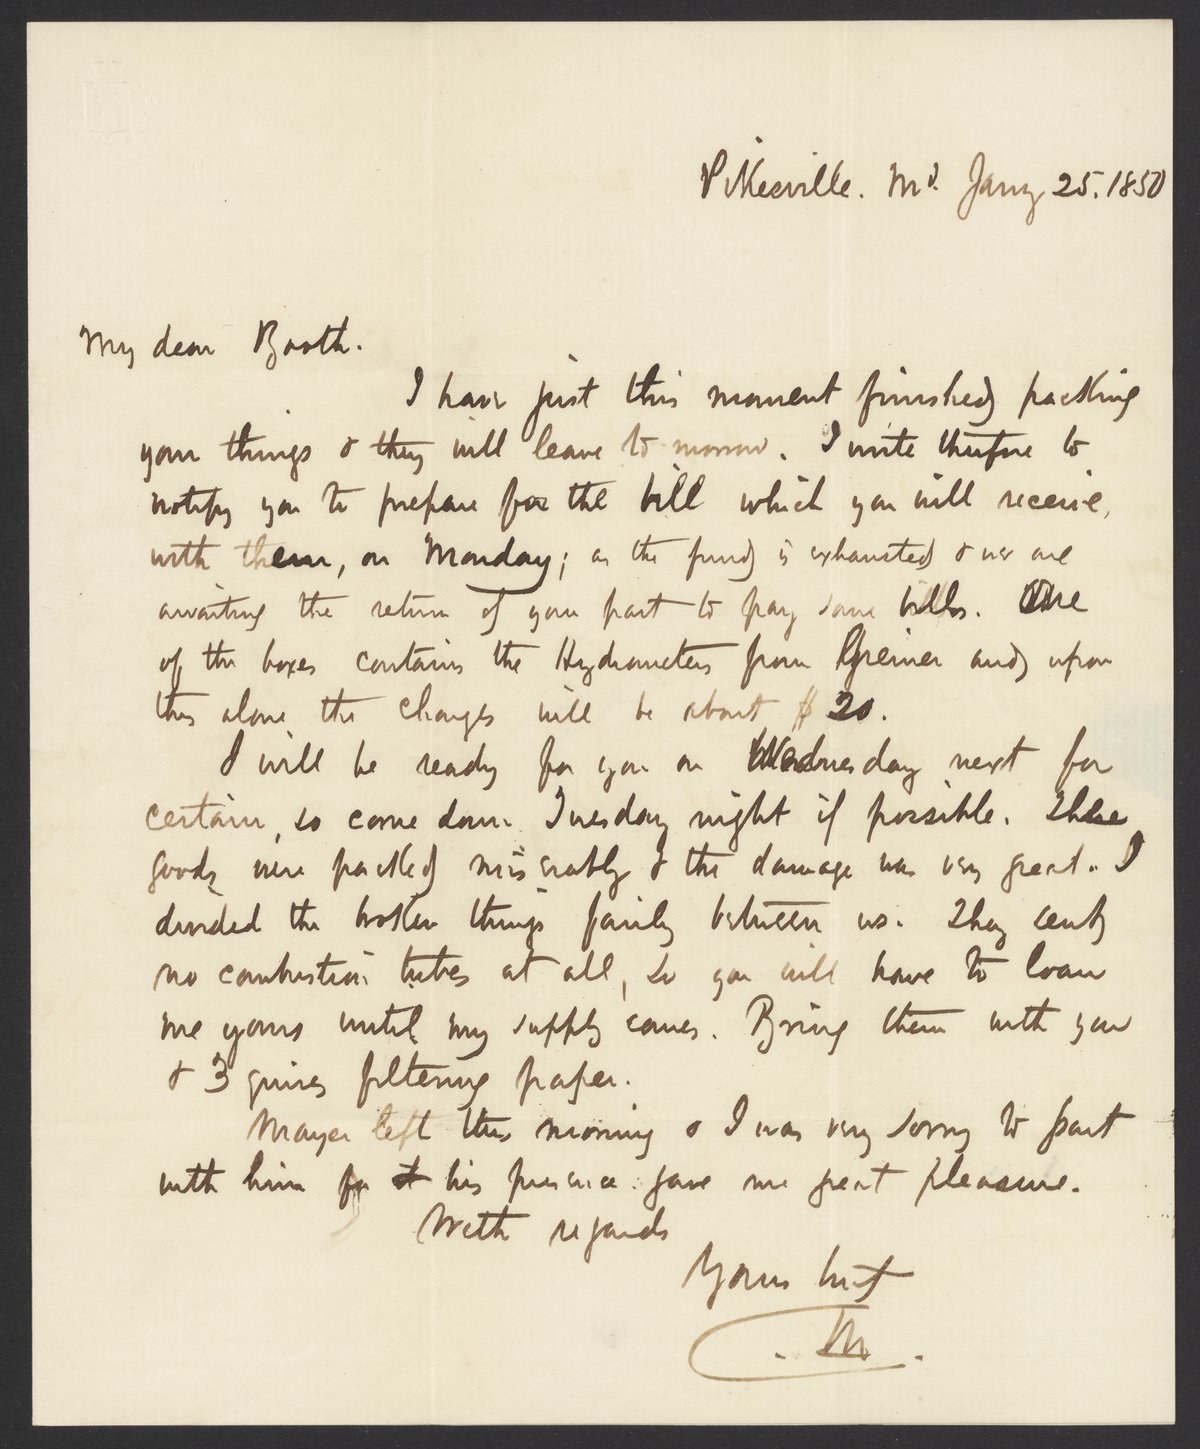 Pikesville. Md. Jany 25. 1850
My dear Booth.
I have just this moment finished packing
your things & they will leave to morrow. I write therefore to
notify you to prepare for the bill which you will receive,
with them, on Monday; as the fund is exhausted & we are
awaiting the return of your part to pay some bills. One
of the boxes contains the Hydrometers from Greiner and upon
this alone the charges will be about $20.
I will be ready for you on Wednesday next for
certain, so come down Tuesday night if possible. These
goods were packed miserably & the damage was very great. I
divided the broken things fairly between us. They sent
no combustion tubes at all, so you will have to loan
me yours until my supply comes. Bring them with you
& 3 quires filtering paper.
Mayer left this morning & I was very sorry to part
with him for his presence gave me great pleasure.
With regards
Yours